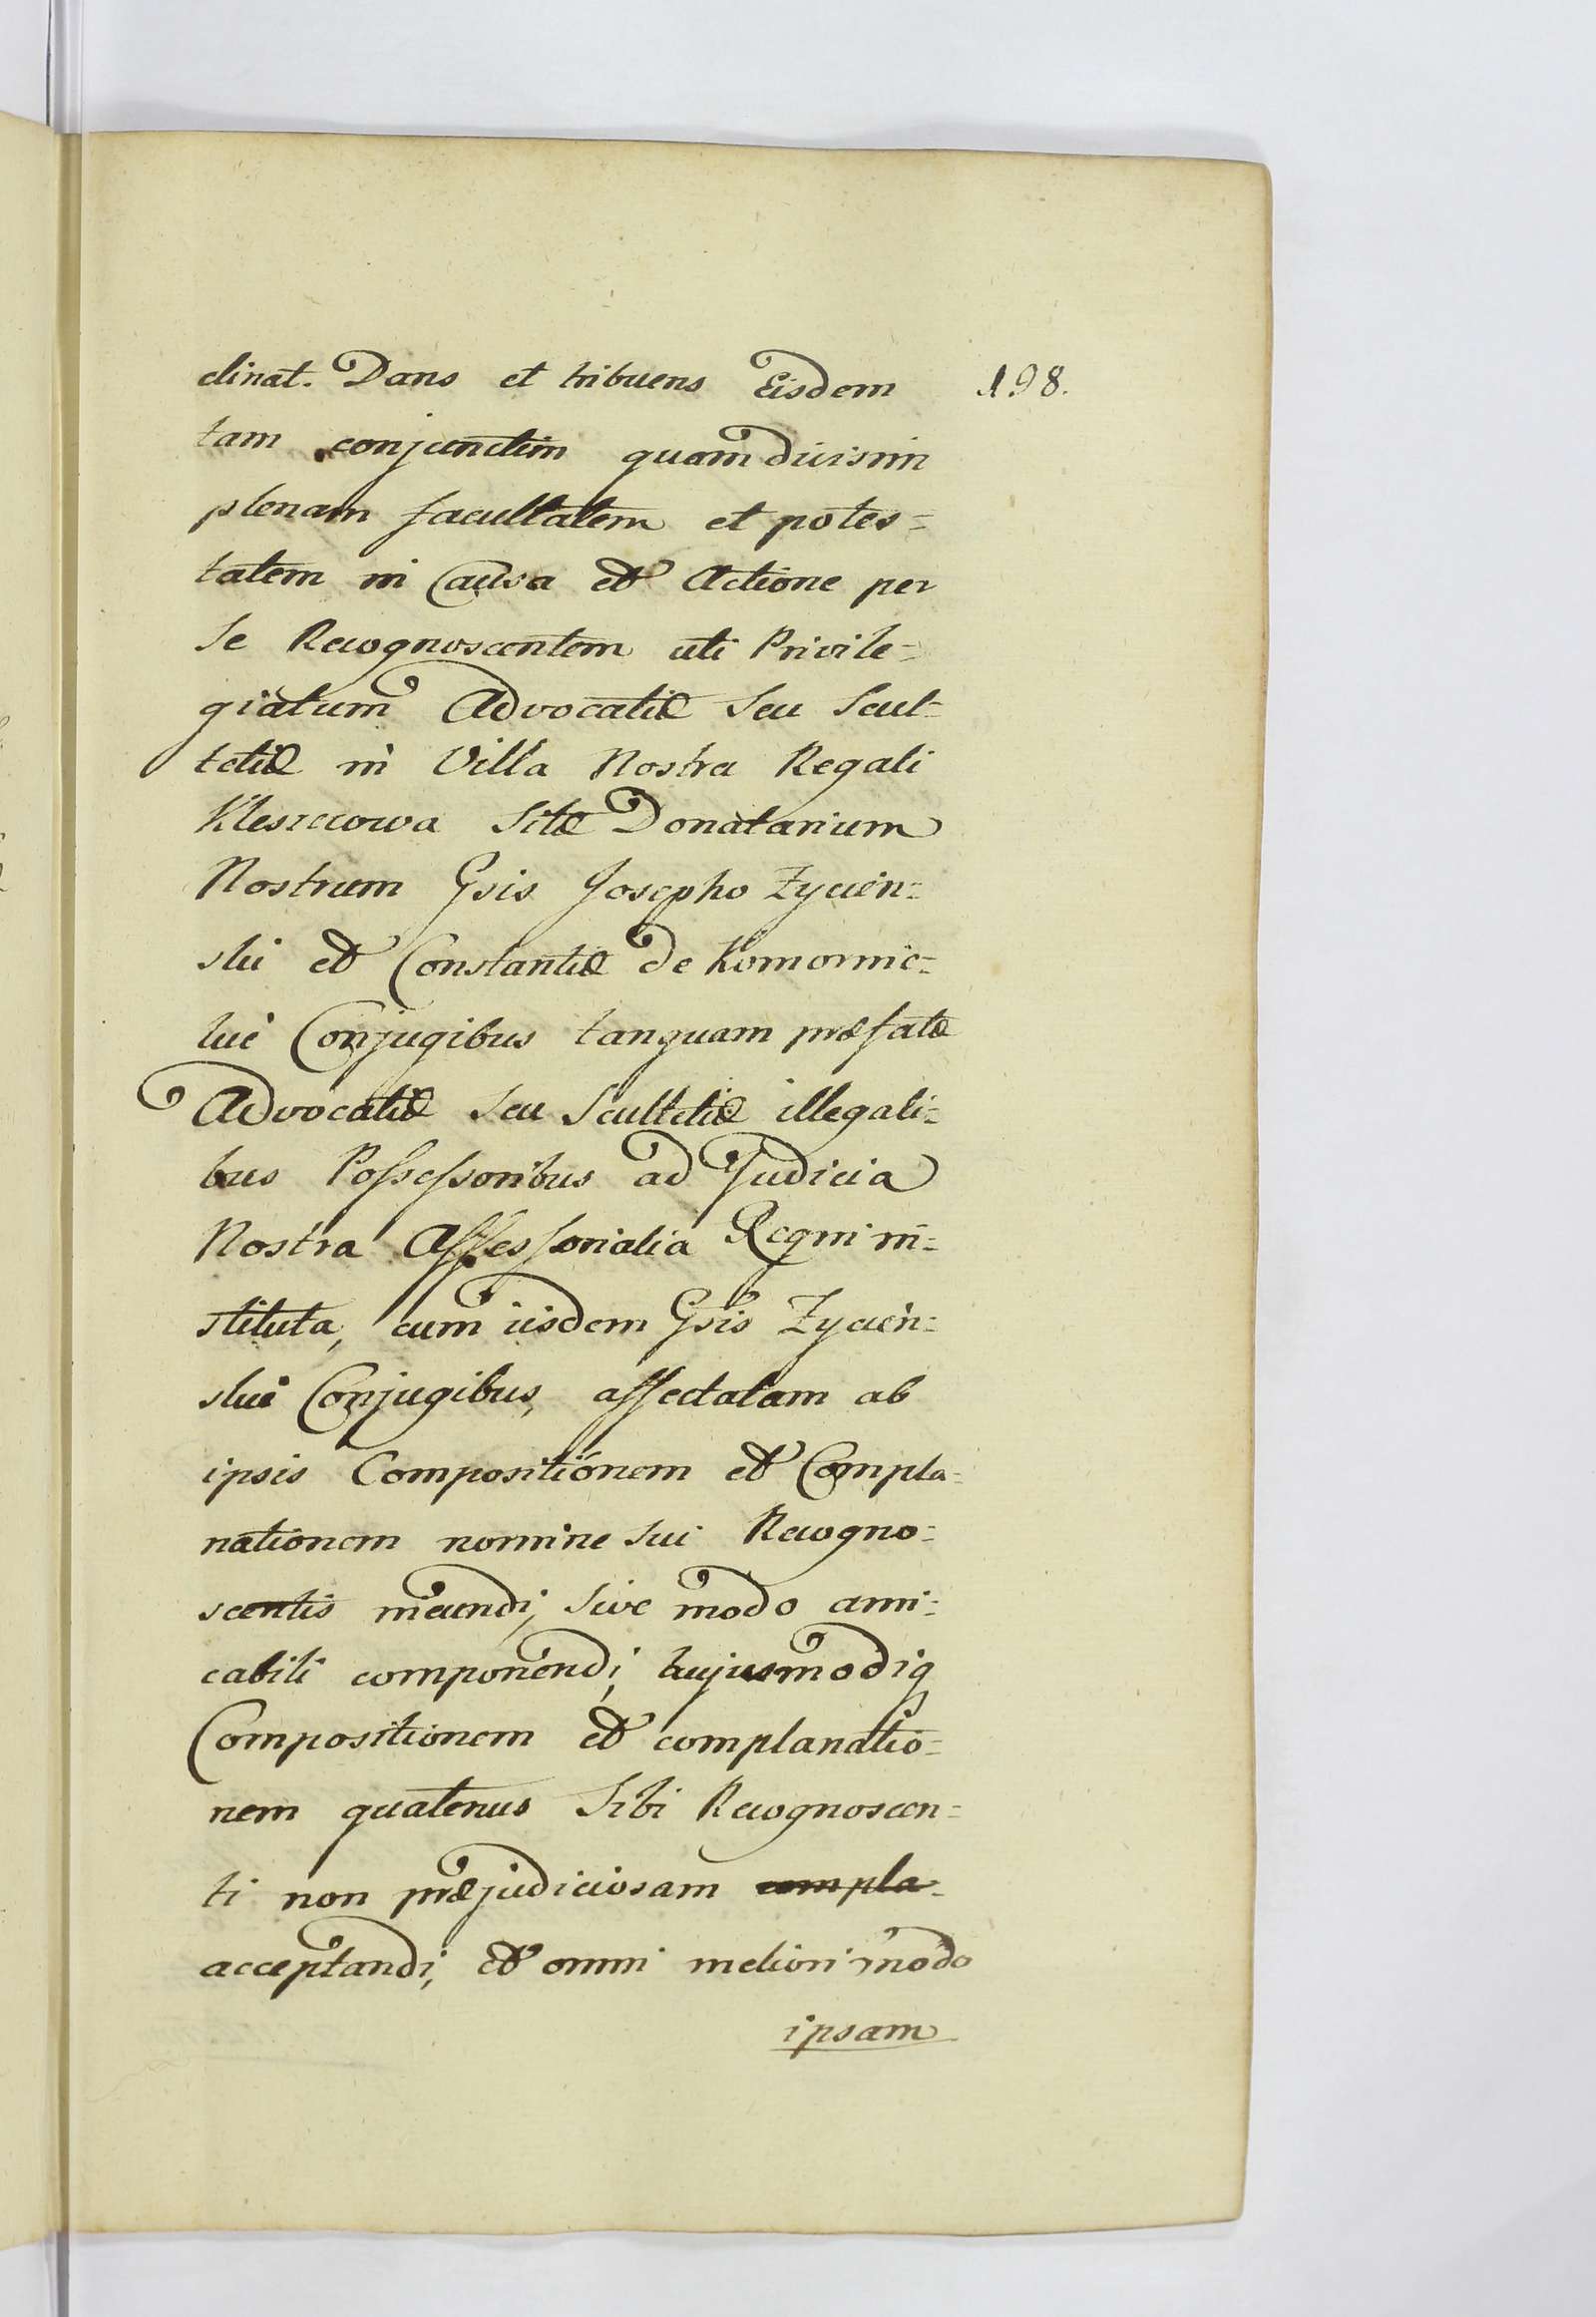 dinat. Dans et tribuens Eisdem 198.
tam conjunctim quam divisim
plenam facultatem et potes=
tatem in Causa et Actione per
Se Recognoscentem uti Privile=
giatum Advocatiæ Seu Scul=
tetiæ in Villa Nostra Regali
Kleszczowa Sitæ Donatarium
Nostrum Gsis Josepho Zycien=
skii et Constantiæ de Komornic=
kui Conjugibus tanquam præfatæ
Advocatiæ Seu Scultetiæ illegali=
bus Possessoribus ad Judicia
Nostra Assessorialia Regni in=
stituta, cum iisdem Gsis Zycien=
skii Conjugibus, affectatam ab
ipsis Compositionem et Compla=
nationem nomine Sui Recogno=
scentis ineundi, Sive modo ami=
cabili componendi, hujusmodiq
Compositionem et complanatio=
nem quatenus Sibi Recognoscen=
ti non præjudiciosam compla=
acceptandi, et omni meliori modo
ipsam